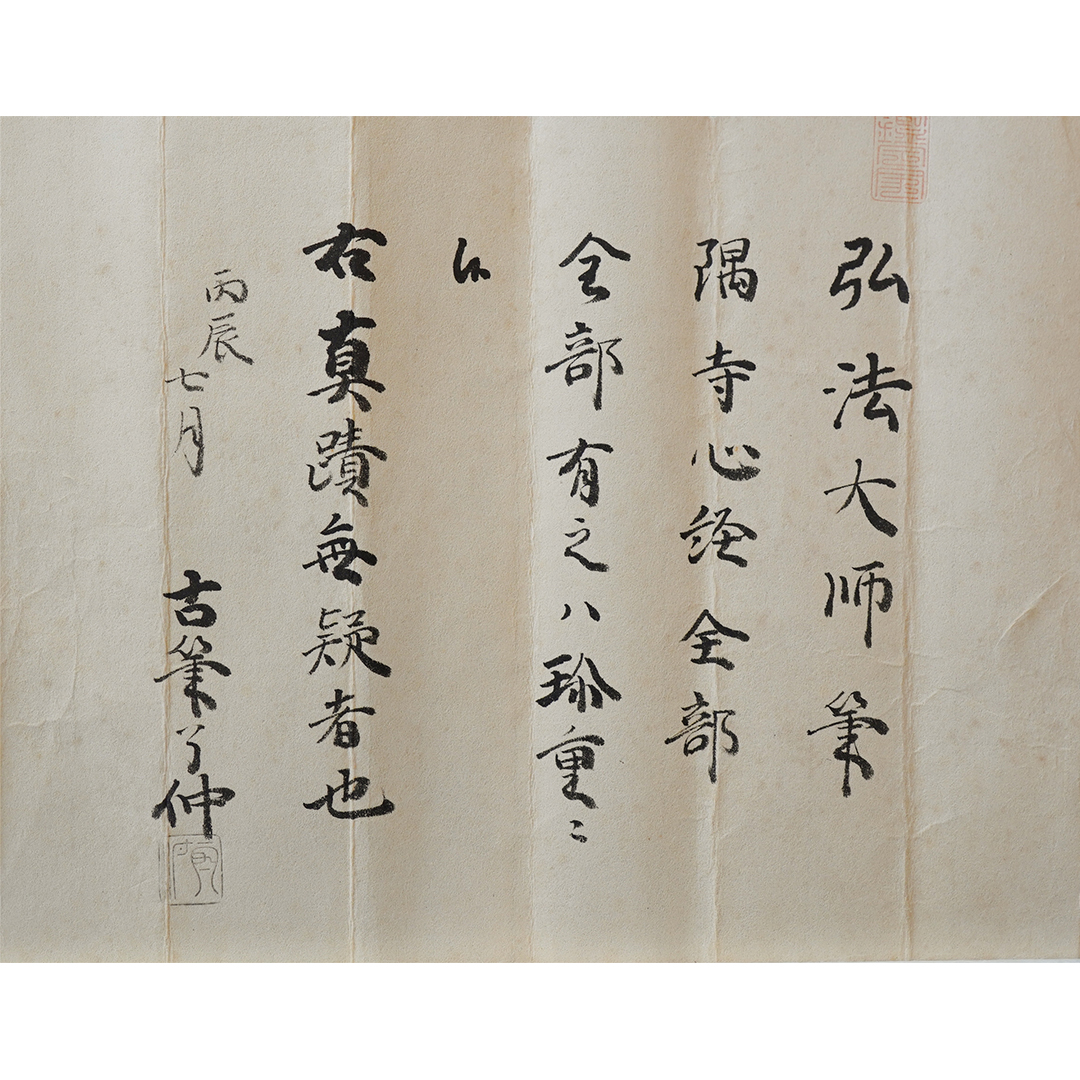 弘法大师筆
隅寺心経全部
全部有之八珎重〻
候
右真蹟無疑者也
丙辰七月
古筆了仲